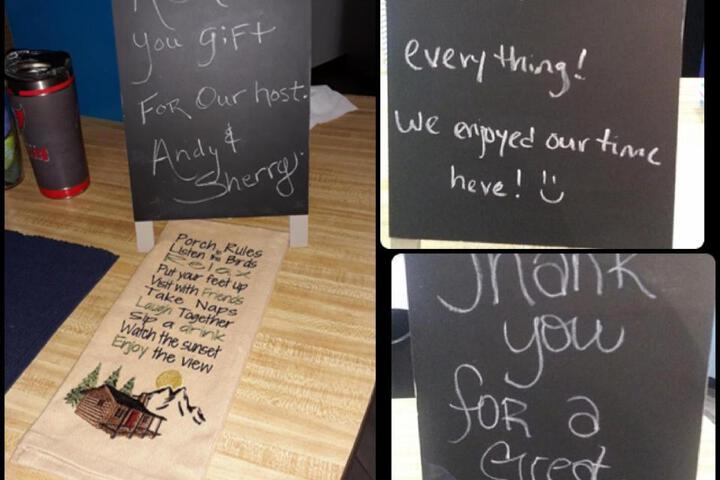 you gift
For Our host.
Andy &
Sherry.
Porch Rules
Listen to the Birds
Relax
Put your feet up
Visit with Friends
Take Naps
Laugh Together
Sip a drink
Watch the sunset
Enjoy the view
everything!
We enjoyed our time
here!
Thank
you
for a
Great